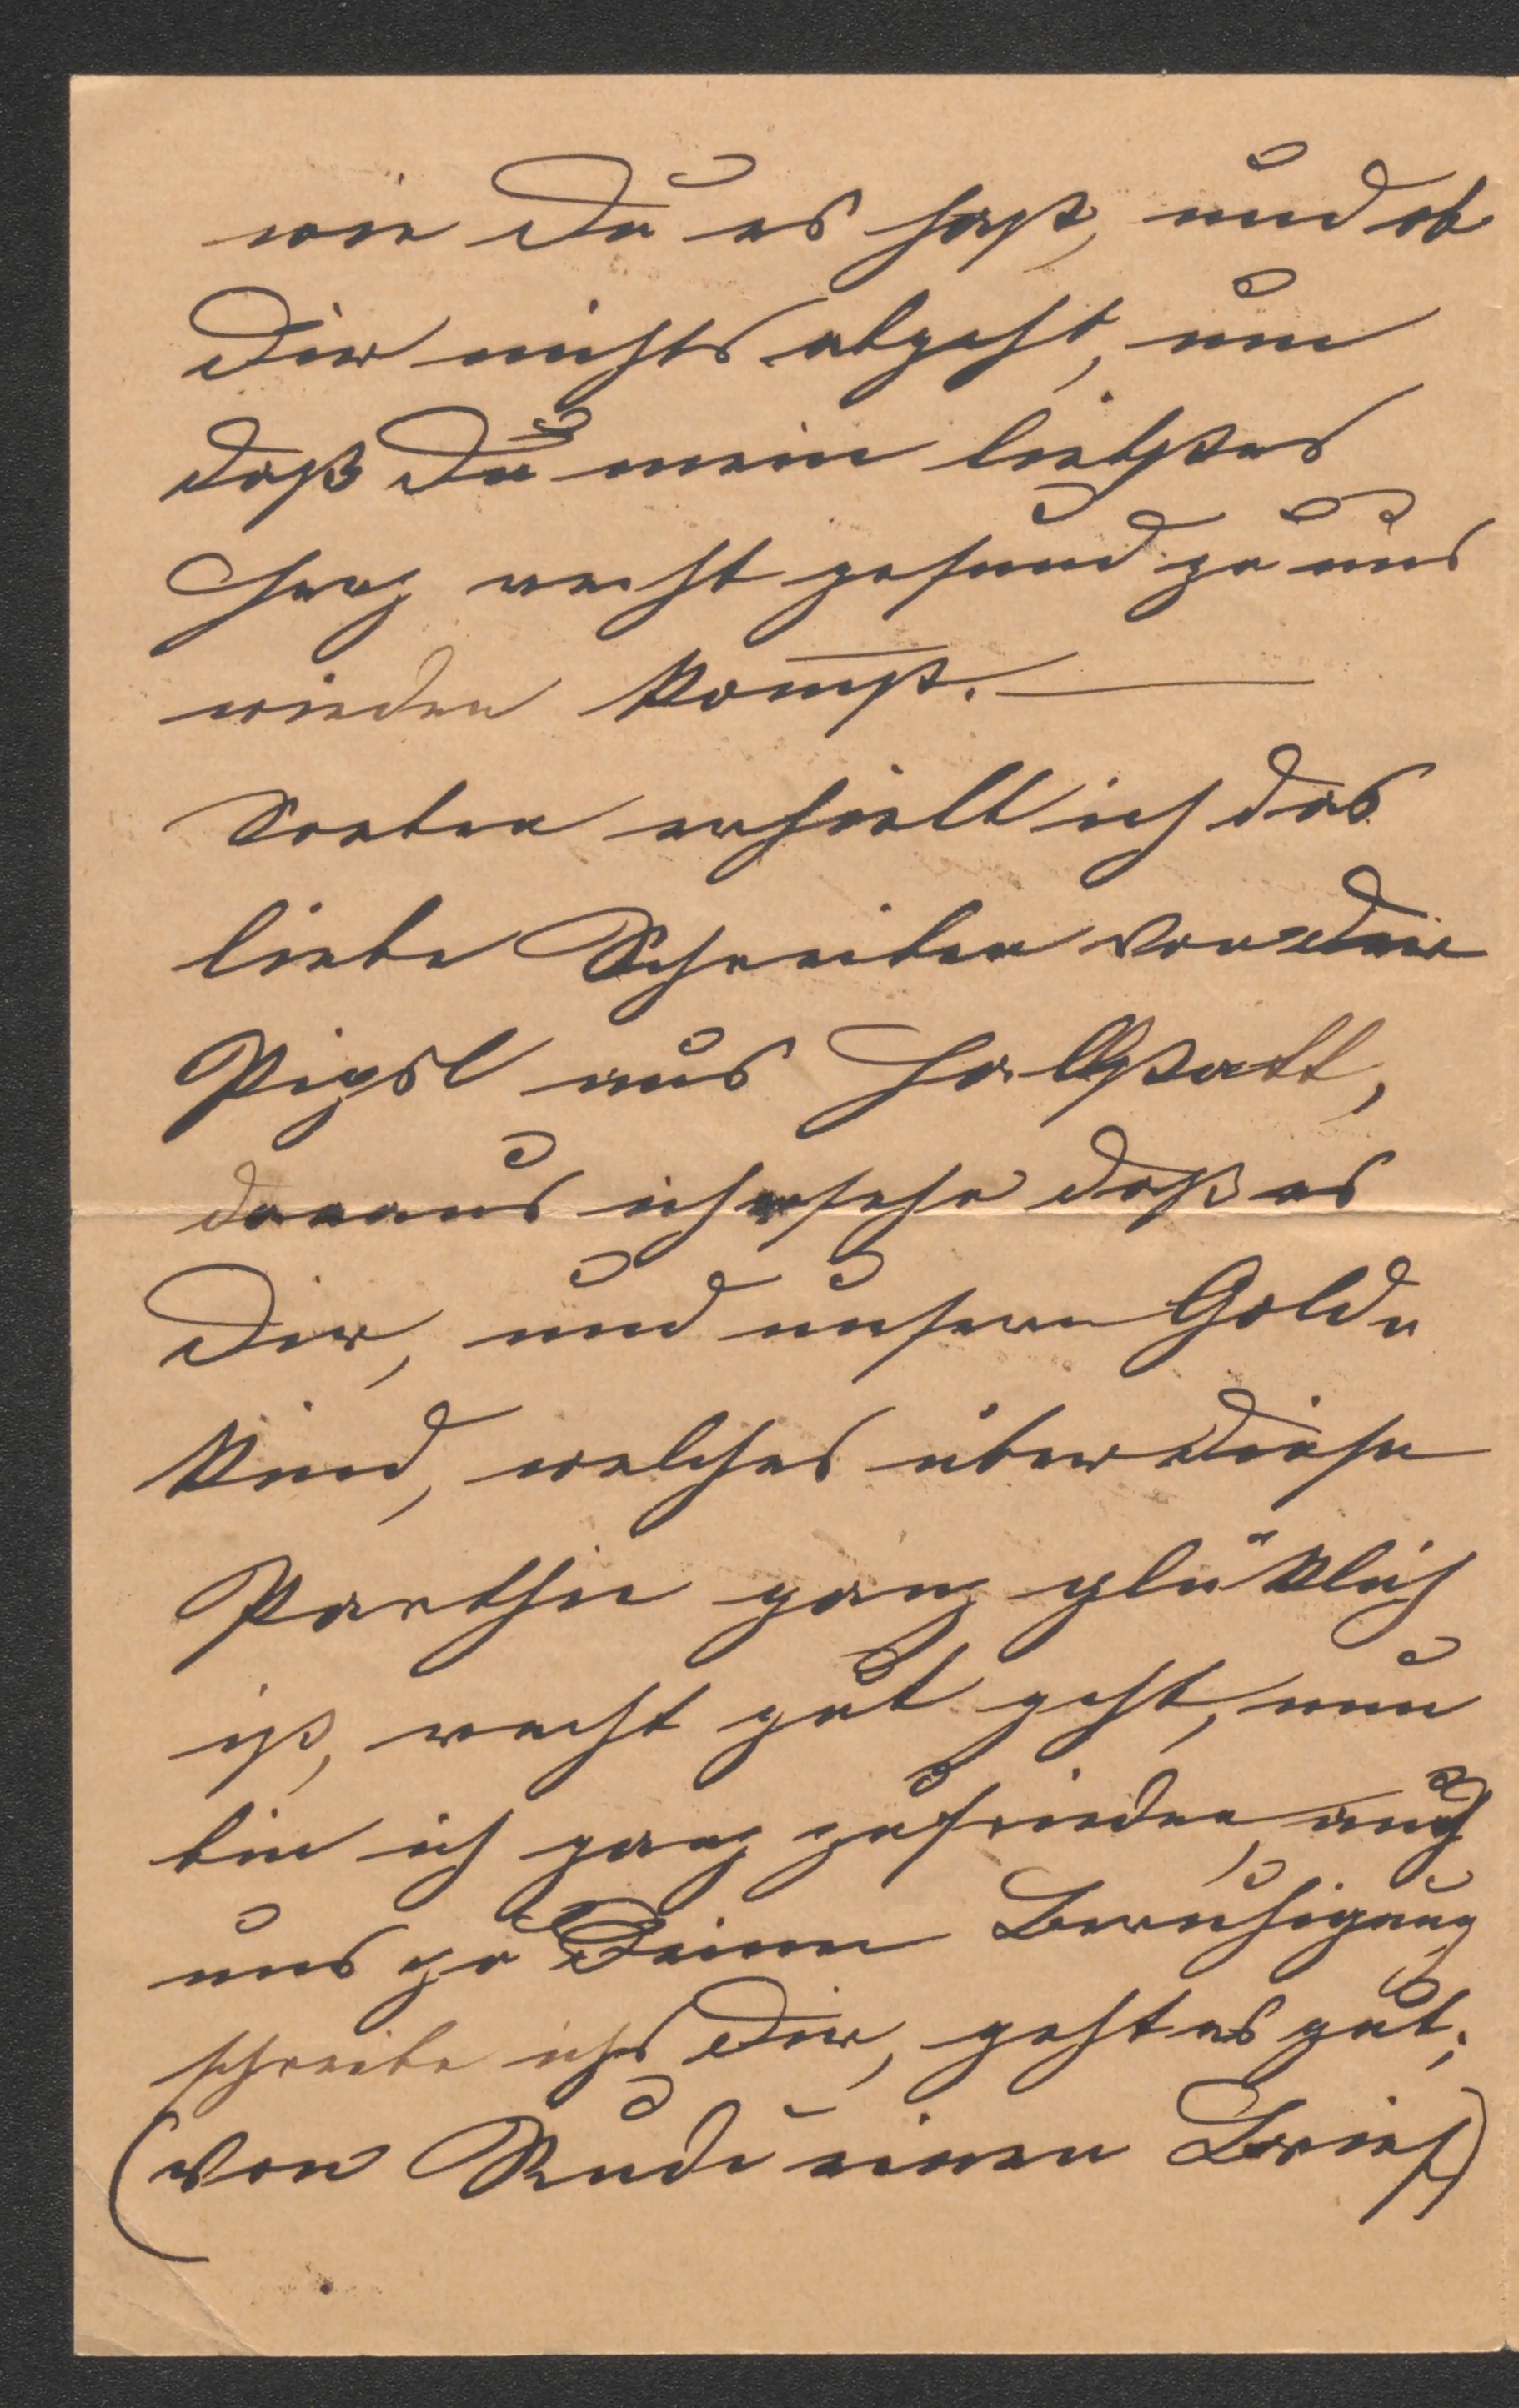 wie Du es hast, und ob
Dir nichts abgeht, nur
daß Du mein liebstes
Herz recht gesund zu uns
wieder komst.
Soeben erhielt ich das
liebe Schreiben von der
aus Hallstatt,
daraus ich ersehe daß es
Dir, und unsern Gold
Kind, welches über diese
Parthie ganz glüklich
ist, recht gut geht, nun
bin ich ganz zufrieden, auch
uns zu Deiner Beruhigung
schreibe ichs Dir, geht es gut;
(von Rudi einen Brief)